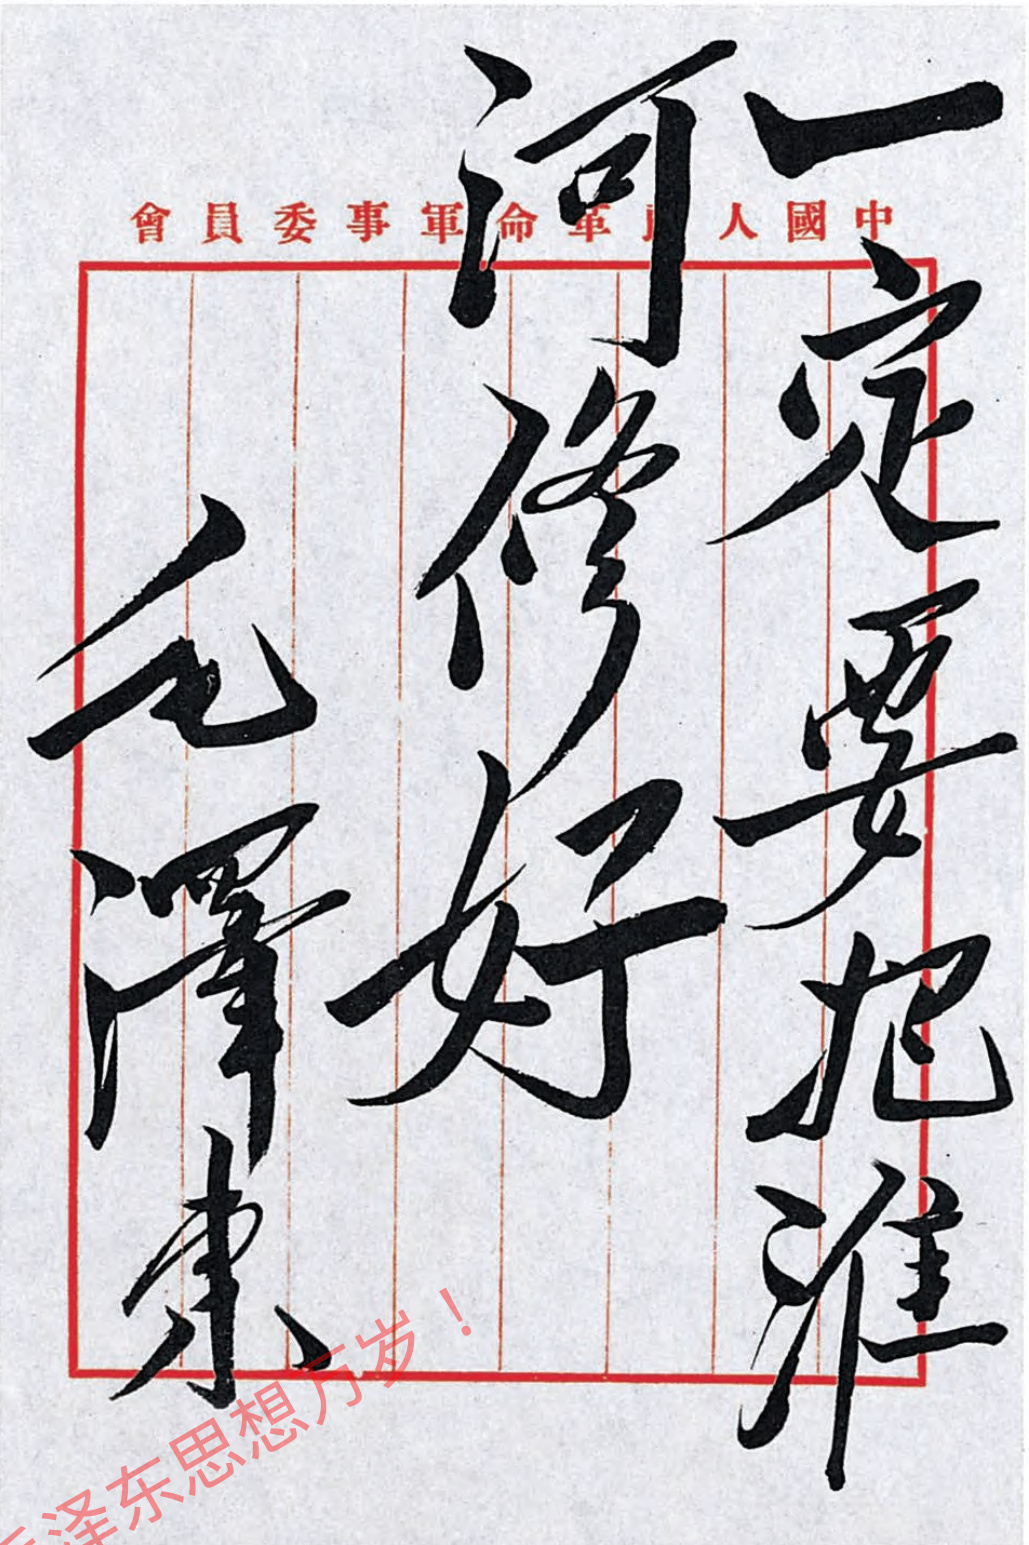 中國人民革命軍事委員會
一定要把淮
河修好
毛澤東
毛泽东思想万岁！